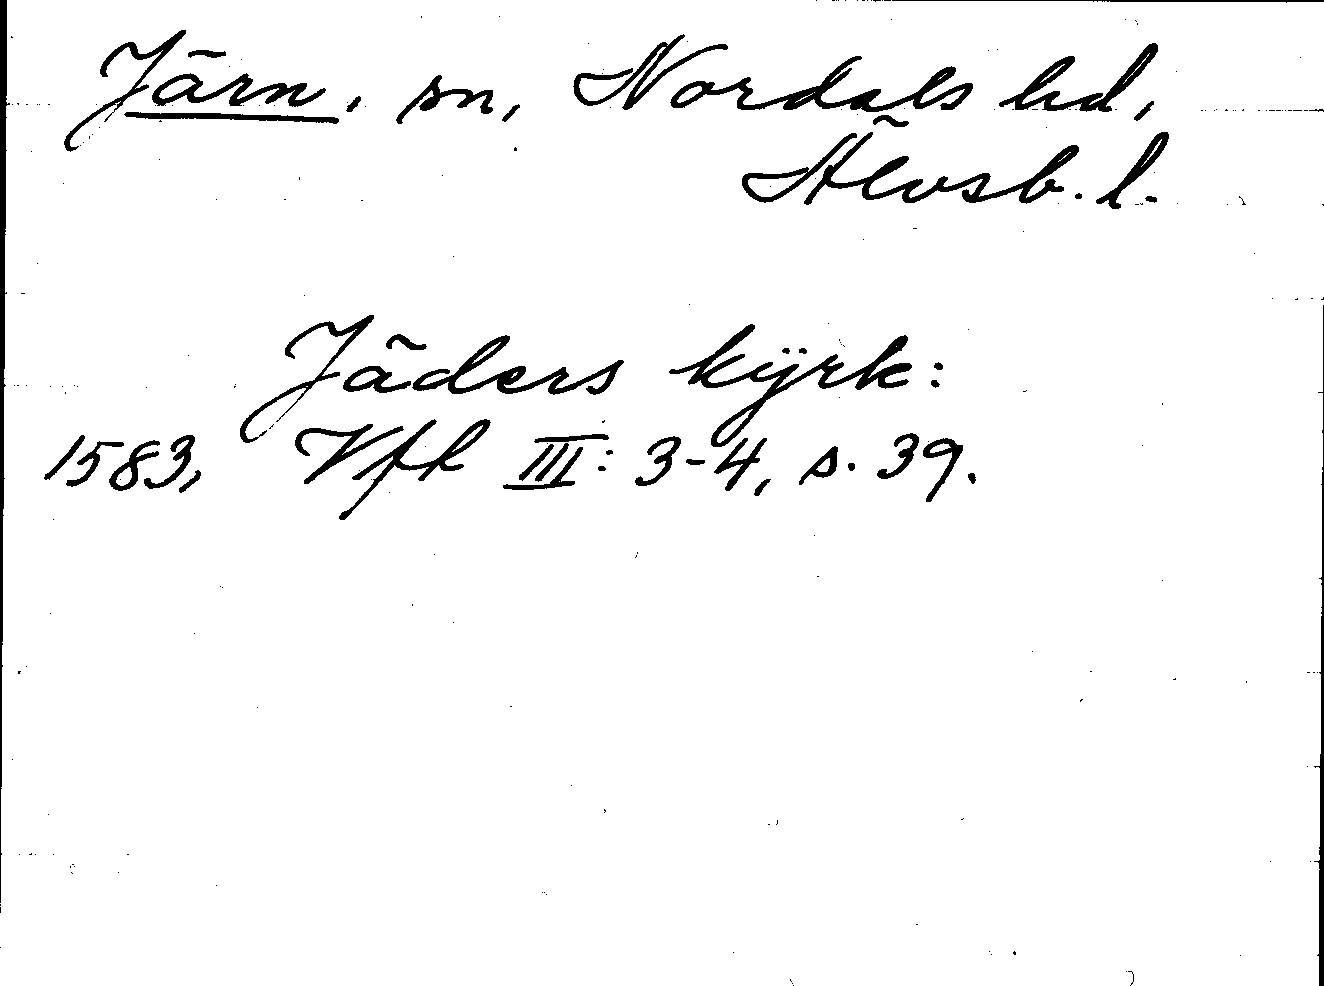 Järn, sn, Nordals hd,
Älvsb. l.
Jäders kÿrk:
1583, Vfk III: 3-4, s. 39.